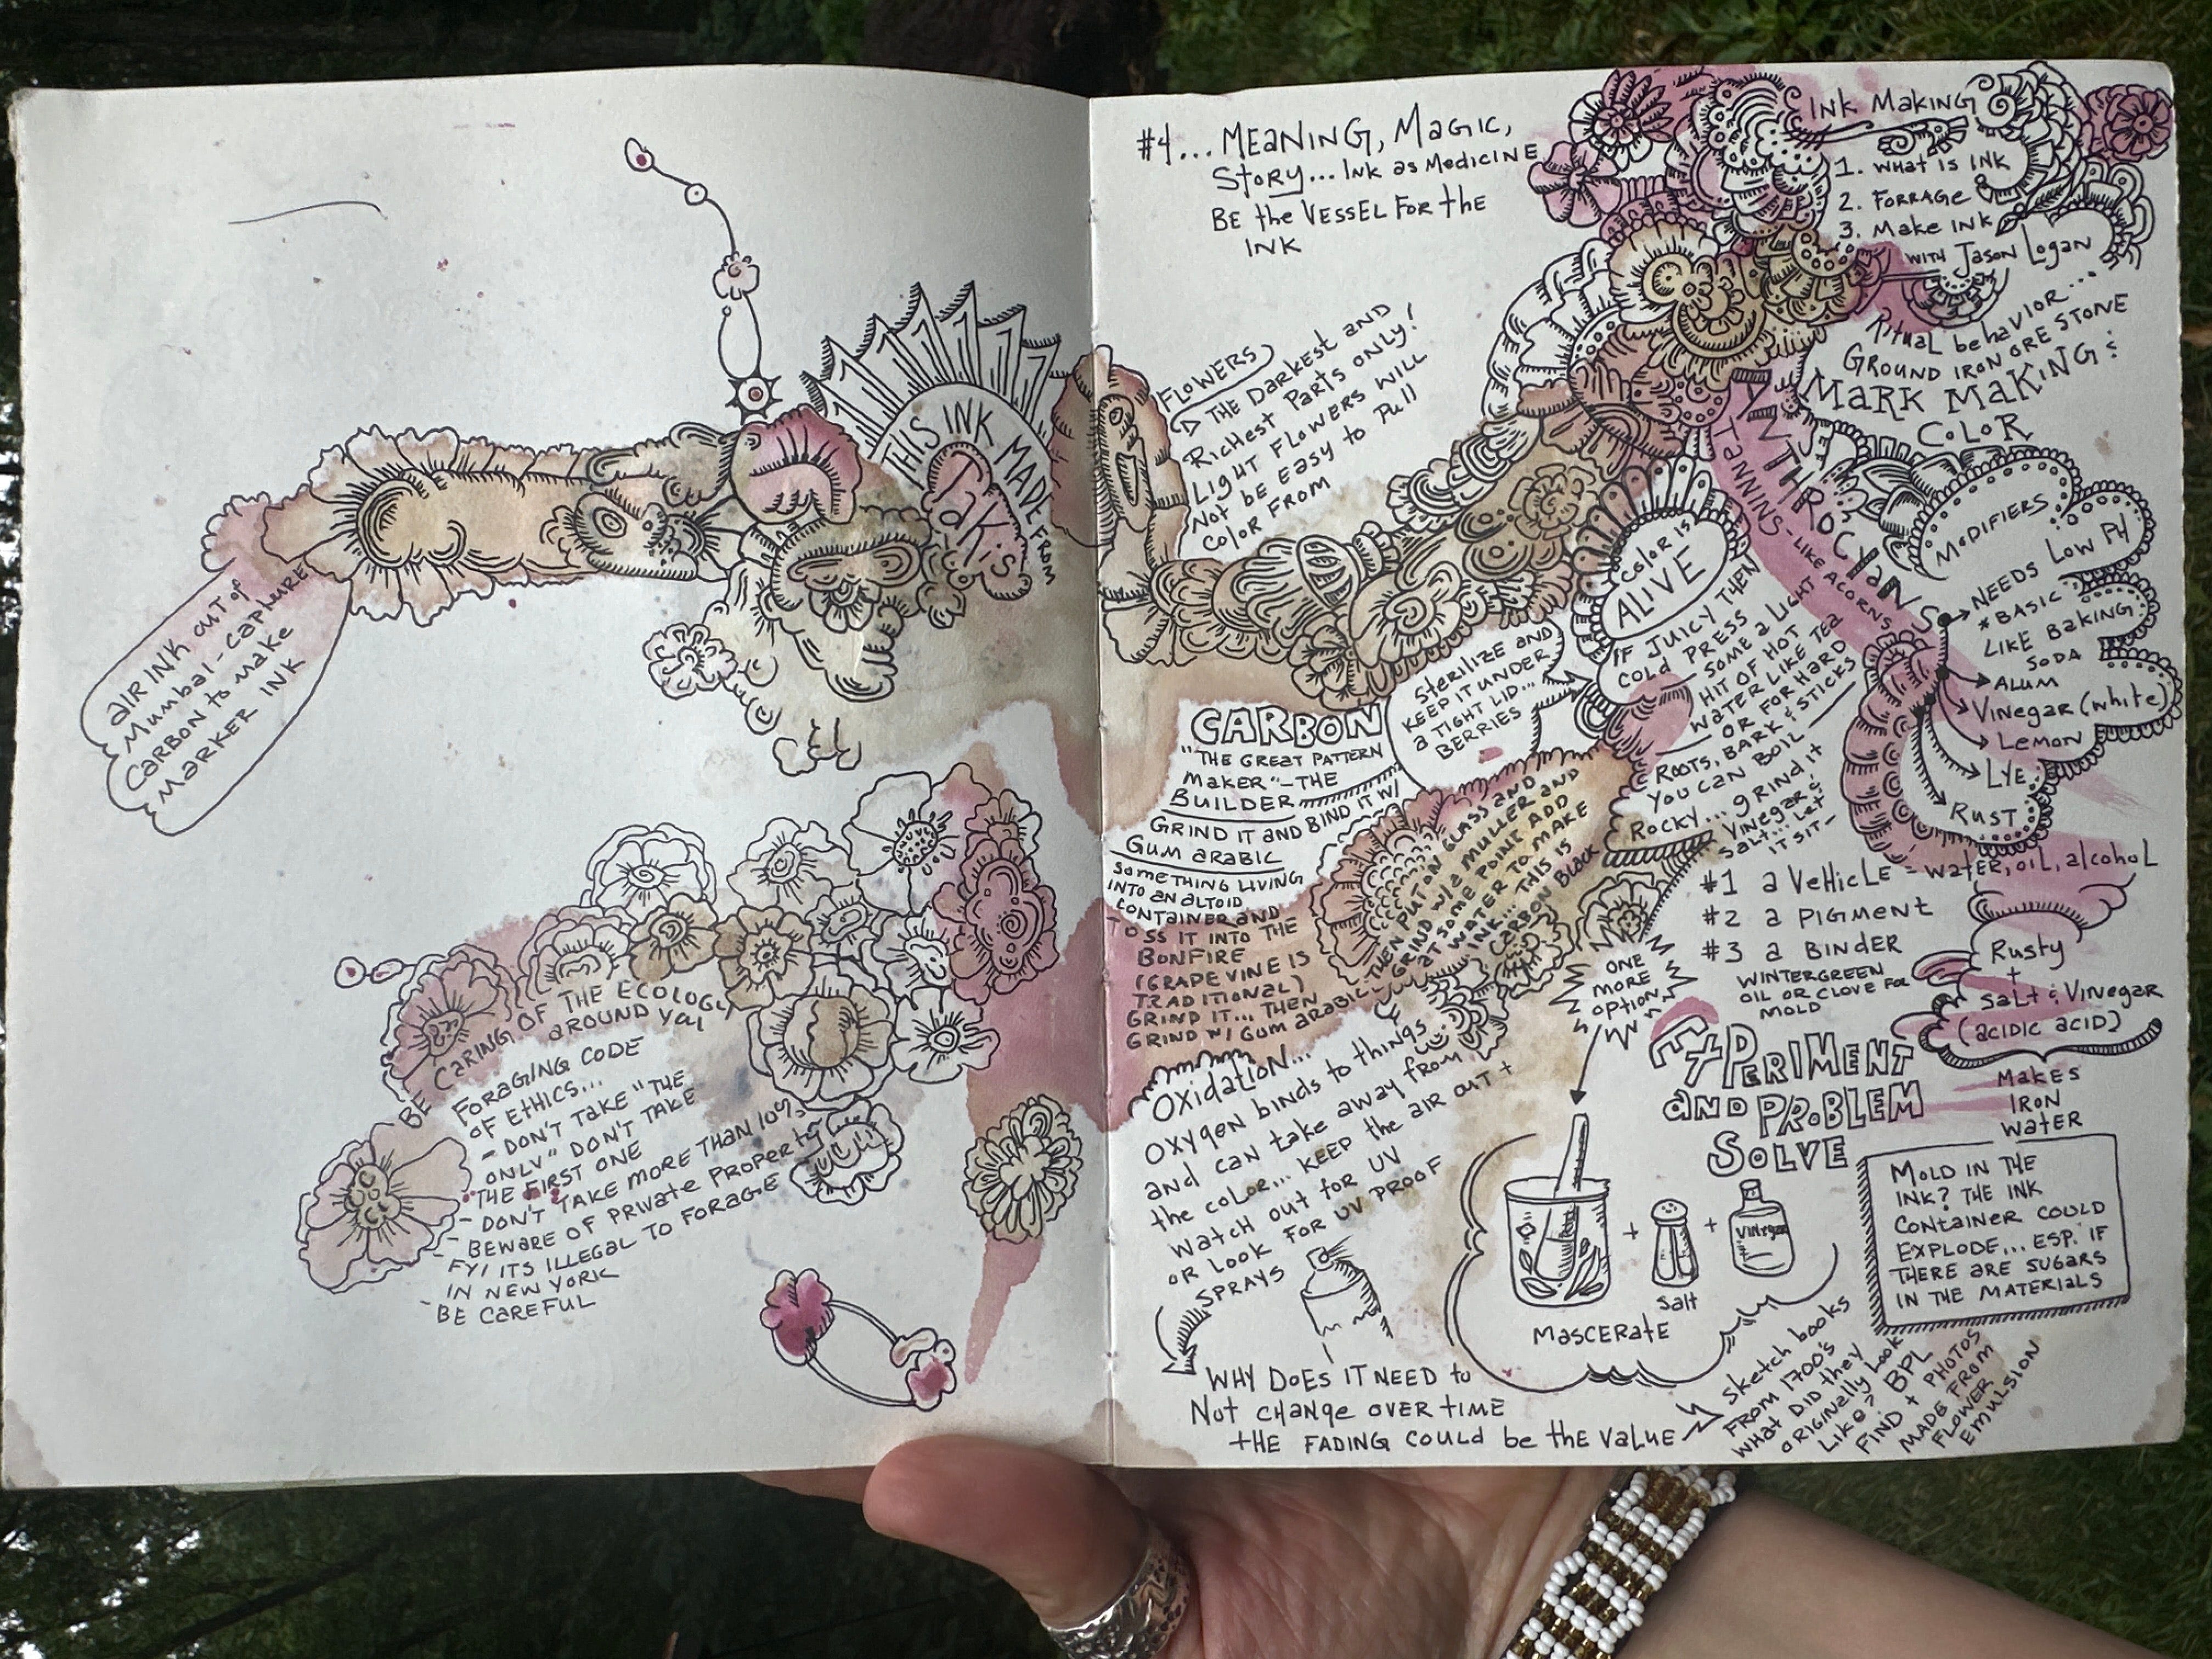 AIR INK OUT of
MUMBAI - CAPTURE
CARBON to make
MARKER INK
THIS INK MADE FROM
Takis
BE CARING OF THE ECOLOGY
AROUND YOU
FORAGING CODE
OF ETHICS...
- DON'T TAKE "THE
ONLY" DON'T TAKE
THE FIRST ONE
- DON'T TAKE MORE THAN 10%
- BEWARE OF PRIVATE PROPERTY
- FYI ITS ILLEGAL TO FORAGE
IN NEW YORK
- BE CAREFUL
#4... MEANING, MAGIC,
STORY... INK as MEDICINE
BE the VESSEL FOR the
INK
INK MAKING
1. WHAT IS INK
2. FORRAGE
3. MAKE INK
WITH JASON LOGAN
Ritual behavior...
GROUND IRON ORE STONE
MARK MAKING &
COLOR
FLOWERS
THE DARKEST AND
RICHEST PARTS ONLY!
LIGHT FLOWERS WILL
NOT BE EASY to Pull
COLOR FROM
ANTHROCYANS
TANNINS - LIKE ACORNS
MODIFIERS
NEEDS LOW PH
* BASIC
LIKE BAKING
SODA
ALUM
VINEGAR (white)
LEMON
LYE
RUST
COLOR IS
ALIVE
IF JUICY THEN
COLD PRESS
SOME A LIGHT
HIT OF HOT
WATER LIKE TEA
OR FOR HARD
ROOTS, BARK & STICKS
YOU CAN BOIL
ROCKY... GRIND IT
VINEGAR &
SALT... LET
IT SIT -
Sterilize AND
KEEP IT UNDER
a TIGHT LID...
BERRIES
CARBON
"THE GREAT PATTERN
MAKER" - THE
BUILDER
GRIND IT AND BIND IT W/
GUM ARABIC
SOMETHING LIVING
INTO AN ALTOID
CONTAINER AND
TOSS IT INTO THE
BONFIRE
(GRAPEVINE IS
TRADITIONAL)
GRIND IT... THEN
GRIND W/ GUM ARABIC
THEN PUT ON GLASS AND
GRIND W/ a MULLER AND
AT SOME POINT ADD
WATER TO MAKE
INK... THIS IS
CARBON BLACK
#1 a VEHICLE = WATER, OIL, alcohol
#2 a PIGMENT
#3 a BINDER
WINTERGREEN
OIL OR CLOVE FOR
MOLD
Rusty
+
Salt & Vinegar
(acidic acid)
MAKES
IRON
WATER
ONE
MORE
OPTION
EXPERIMENT
AND PROBLEM
SOLVE
OXIDATION...
OXYGEN binds to things
and can take away from
the color... KEEP the AIR OUT +
WATCH OUT FOR UV
OR LOOK FOR UV PROOF
SPRAYS
+
+
Vinegar
Salt
MASCERATE
MOLD IN THE
INK? THE INK
CONTAINER COULD
EXPLODE... ESP. IF
THERE ARE SUGARS
IN THE MATERIALS
WHY DOES IT NEED to
NOT CHANGE OVER TIME
THE FADING COULD be THE VALUE
Sketch books
FROM 1700's
WHAT DID they
ORIGINALLY LOOK
LIKE? BPL
FIND + PHOTOS
MADE FROM
FLOWER
EMULSION